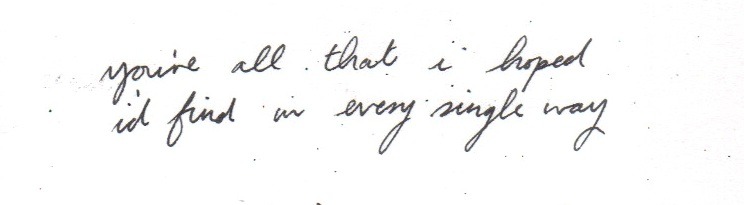 you're all that i hoped
i'd find in every single way